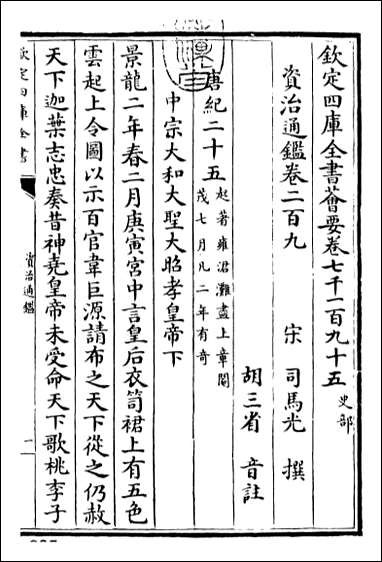 欽定四庫全書薈要卷七千一百九十五 史部
資治通鑑卷二百九
宋 司馬光 撰
胡三省 音註
唐紀二十五 起著雍涒灘盡上章閹
茂七月凡二年有奇
中宗大和大聖大昭孝皇帝下
景龍二年春二月庚寅宮中言皇后衣笥裙上有五色
雲起上令圖以示百官韋巨源請布之天下從之仍赦
天下迦葉志忠奏昔神堯皇帝未受命天下歌桃李子
欽定四庫全書
資治通鑑
一